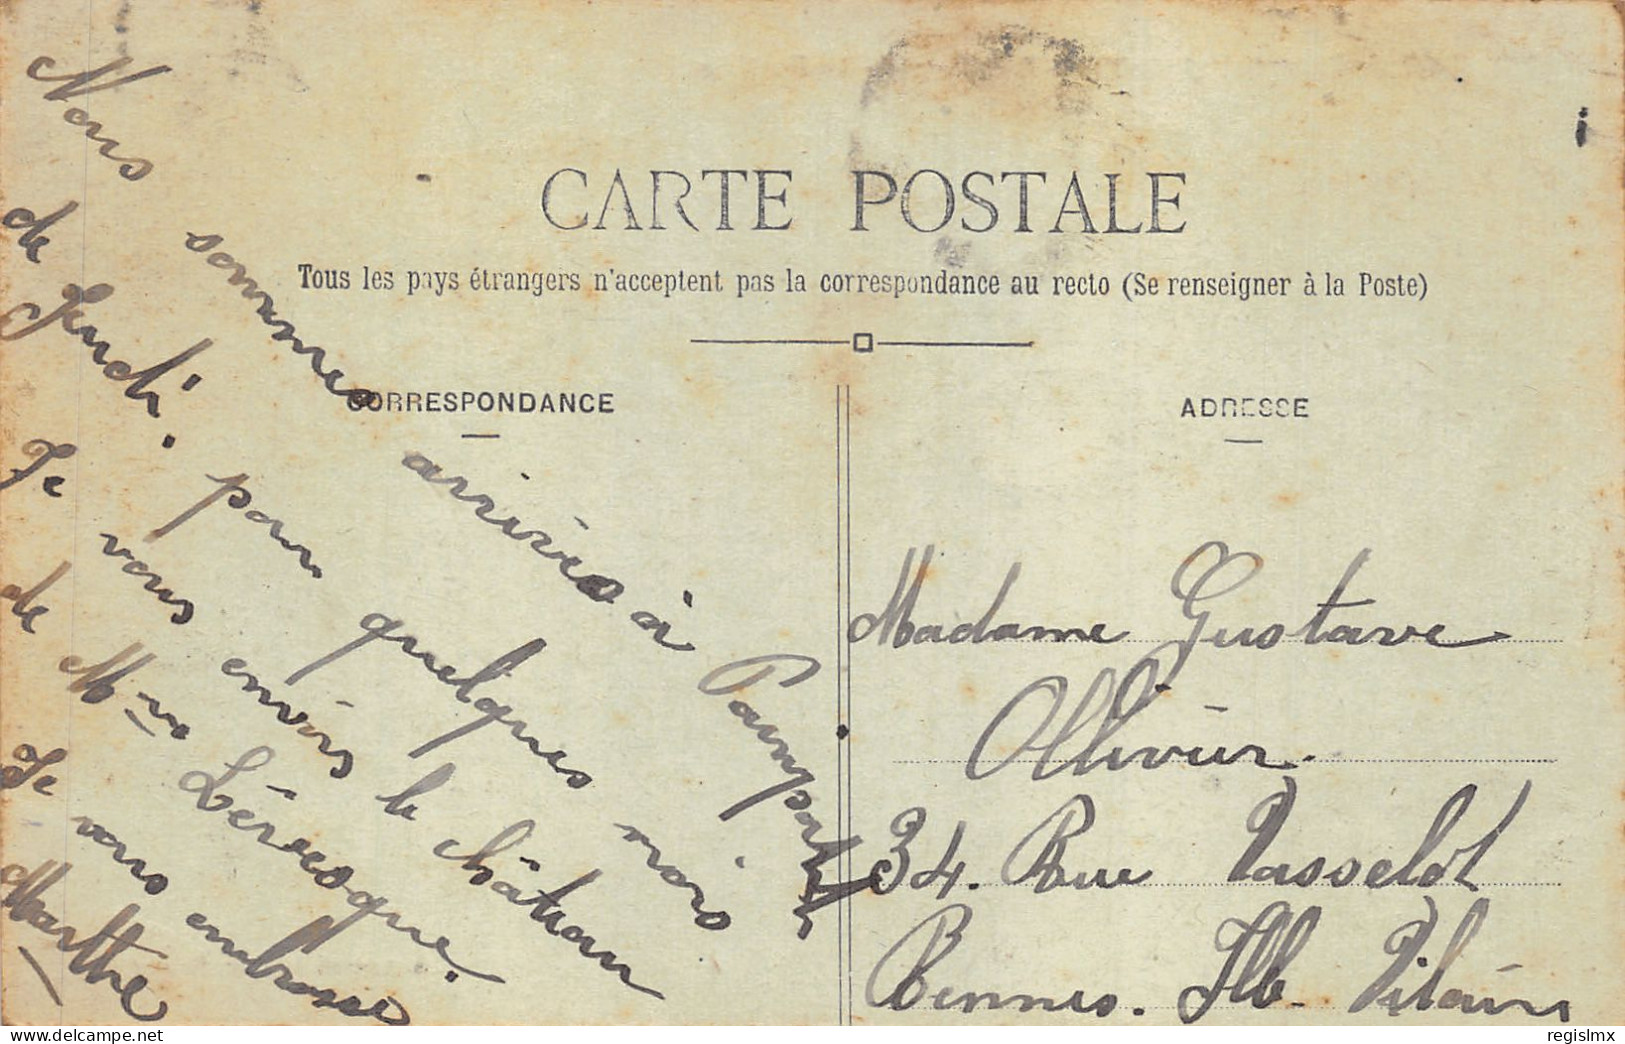 CARTE POSTALE
Tous les pays étrangers n'acceptent pas la correspondance au recto (Se renseigner à la Poste)
CORRESPONDANCE
ADRESSE
Nous sommes arrivés à Paimpol
de Jeudi. pour quelques mois
Je vous envois le château
de Mme Lévesque.
Je vous embrasse
Marthe
Madame Gustave
Ollivier.
34. Rue Vasselot
Rennes. Ille- Vilaine
regislmx